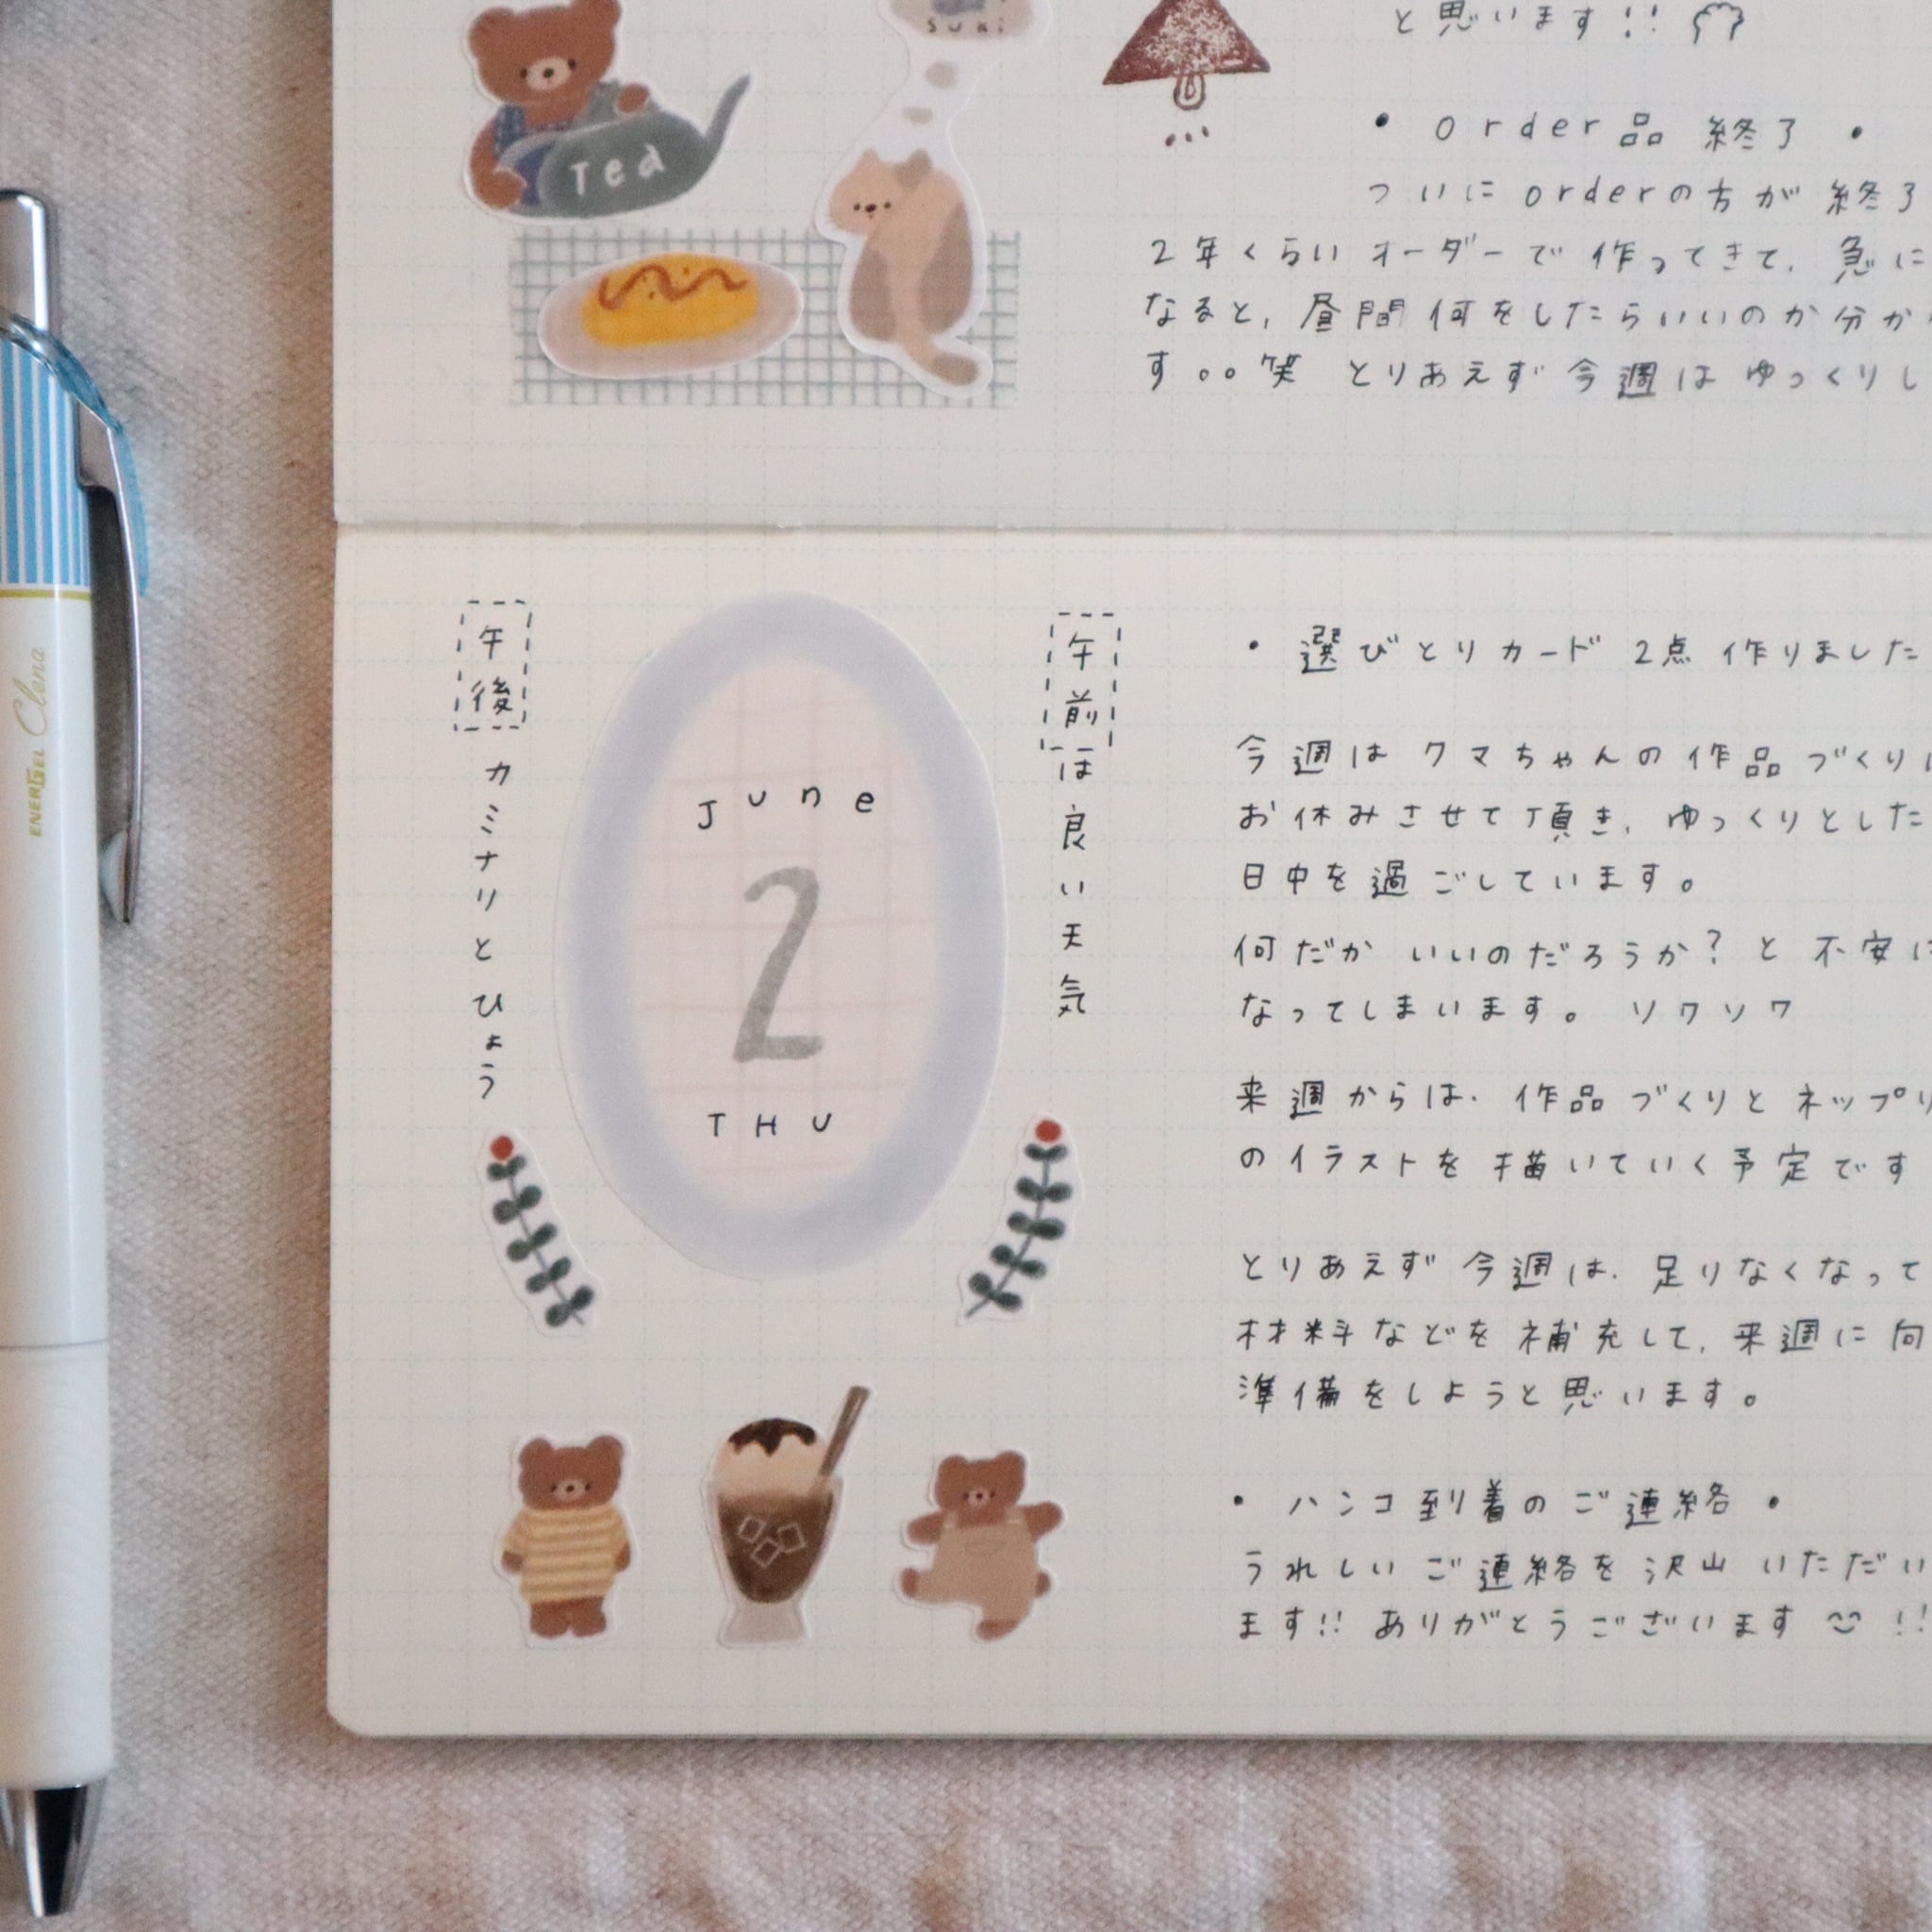 suki
Tea
と思います!!
• order品 終了 •
ついにorderの方が 終了
2年くらいオーダーで 作ってきて、急に
なると、昼間 何をしたらいいのか分か
す。。笑 とりあえず 今週は ゆっくりし
午後 カミナリとひょう
June
2
THU
午前は良い天気
• 選びとりカード 2点 作りました
今週は クマちゃんの 作品づくりは
お休みさせて頂き、ゆっくりとした
日中を過ごしています。
何だか いいのだろうか? と 不安に
なってしまいます。 ソワソワ
来週からは、作品 づくりと ネップリ
のイラストを 描いていく予定です
とりあえず 今週は、足りなくなって
材料などを 補充して、来週に向
準備をしようと思います。
• ハンコ到着の ご連絡 •
うれしい ご連絡を 沢山 いただい
ます!! ありがとうございます !!
ENERGEL Clena